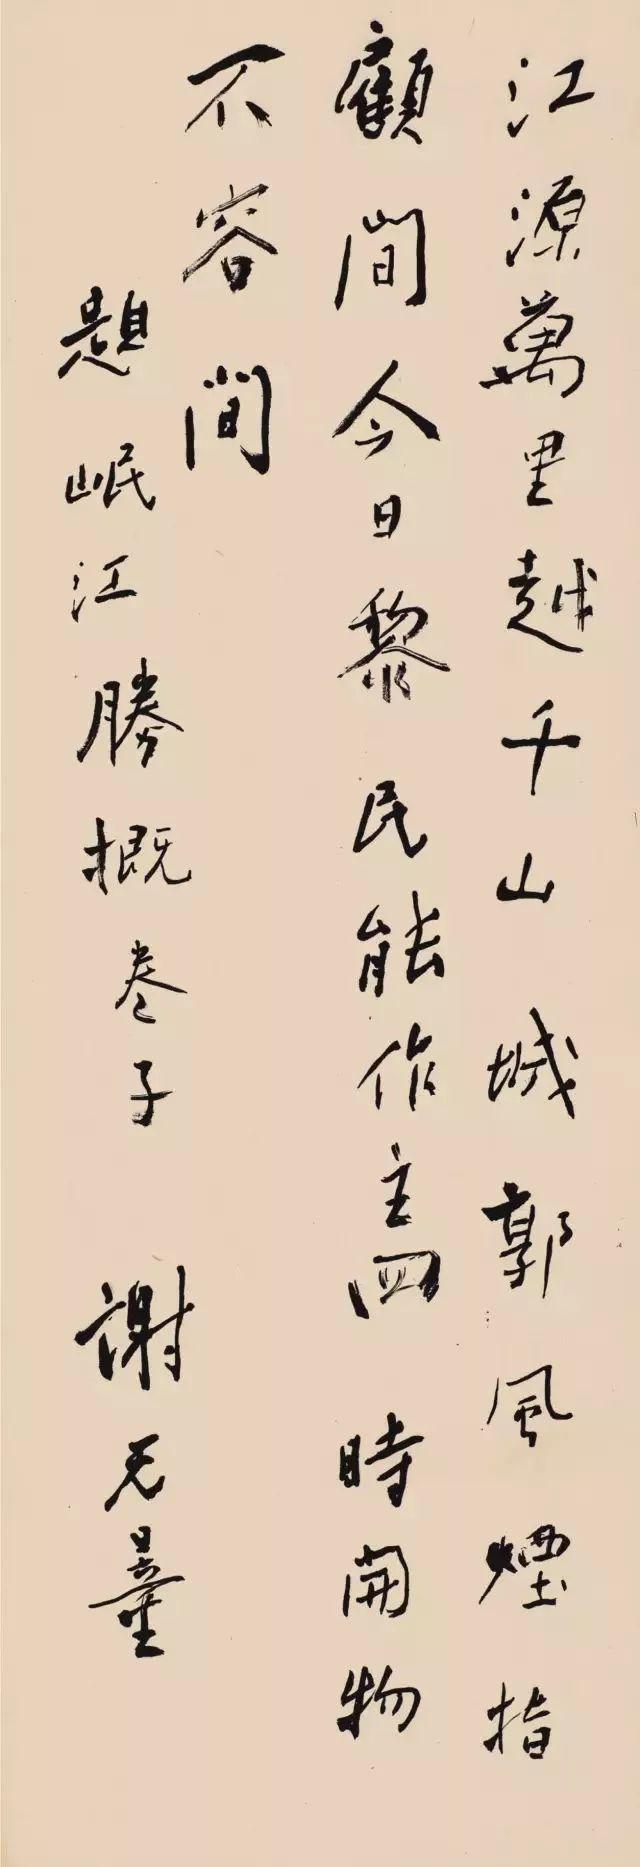 江源萬里越千山城郭風煙指
顧間今日黎民能作主四時開物
不容間
題岷江勝概卷子 謝无量